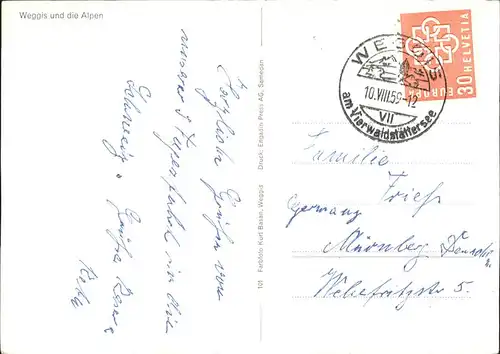 Weggis und die Alpen
Herzliche Grüße von
unserer 3 Tagesfahrt in die
Schweiz.
101 Farbfoto: Kurt Baslan, Weggis Druck: Engadin Press AG, Samedan
WEGGIS
10.VIII.59-12
VII
am Vierwaldstättersee
30 HELVETIA
EUROPA
Familie
Fries
Germany
Nürnberg
5.